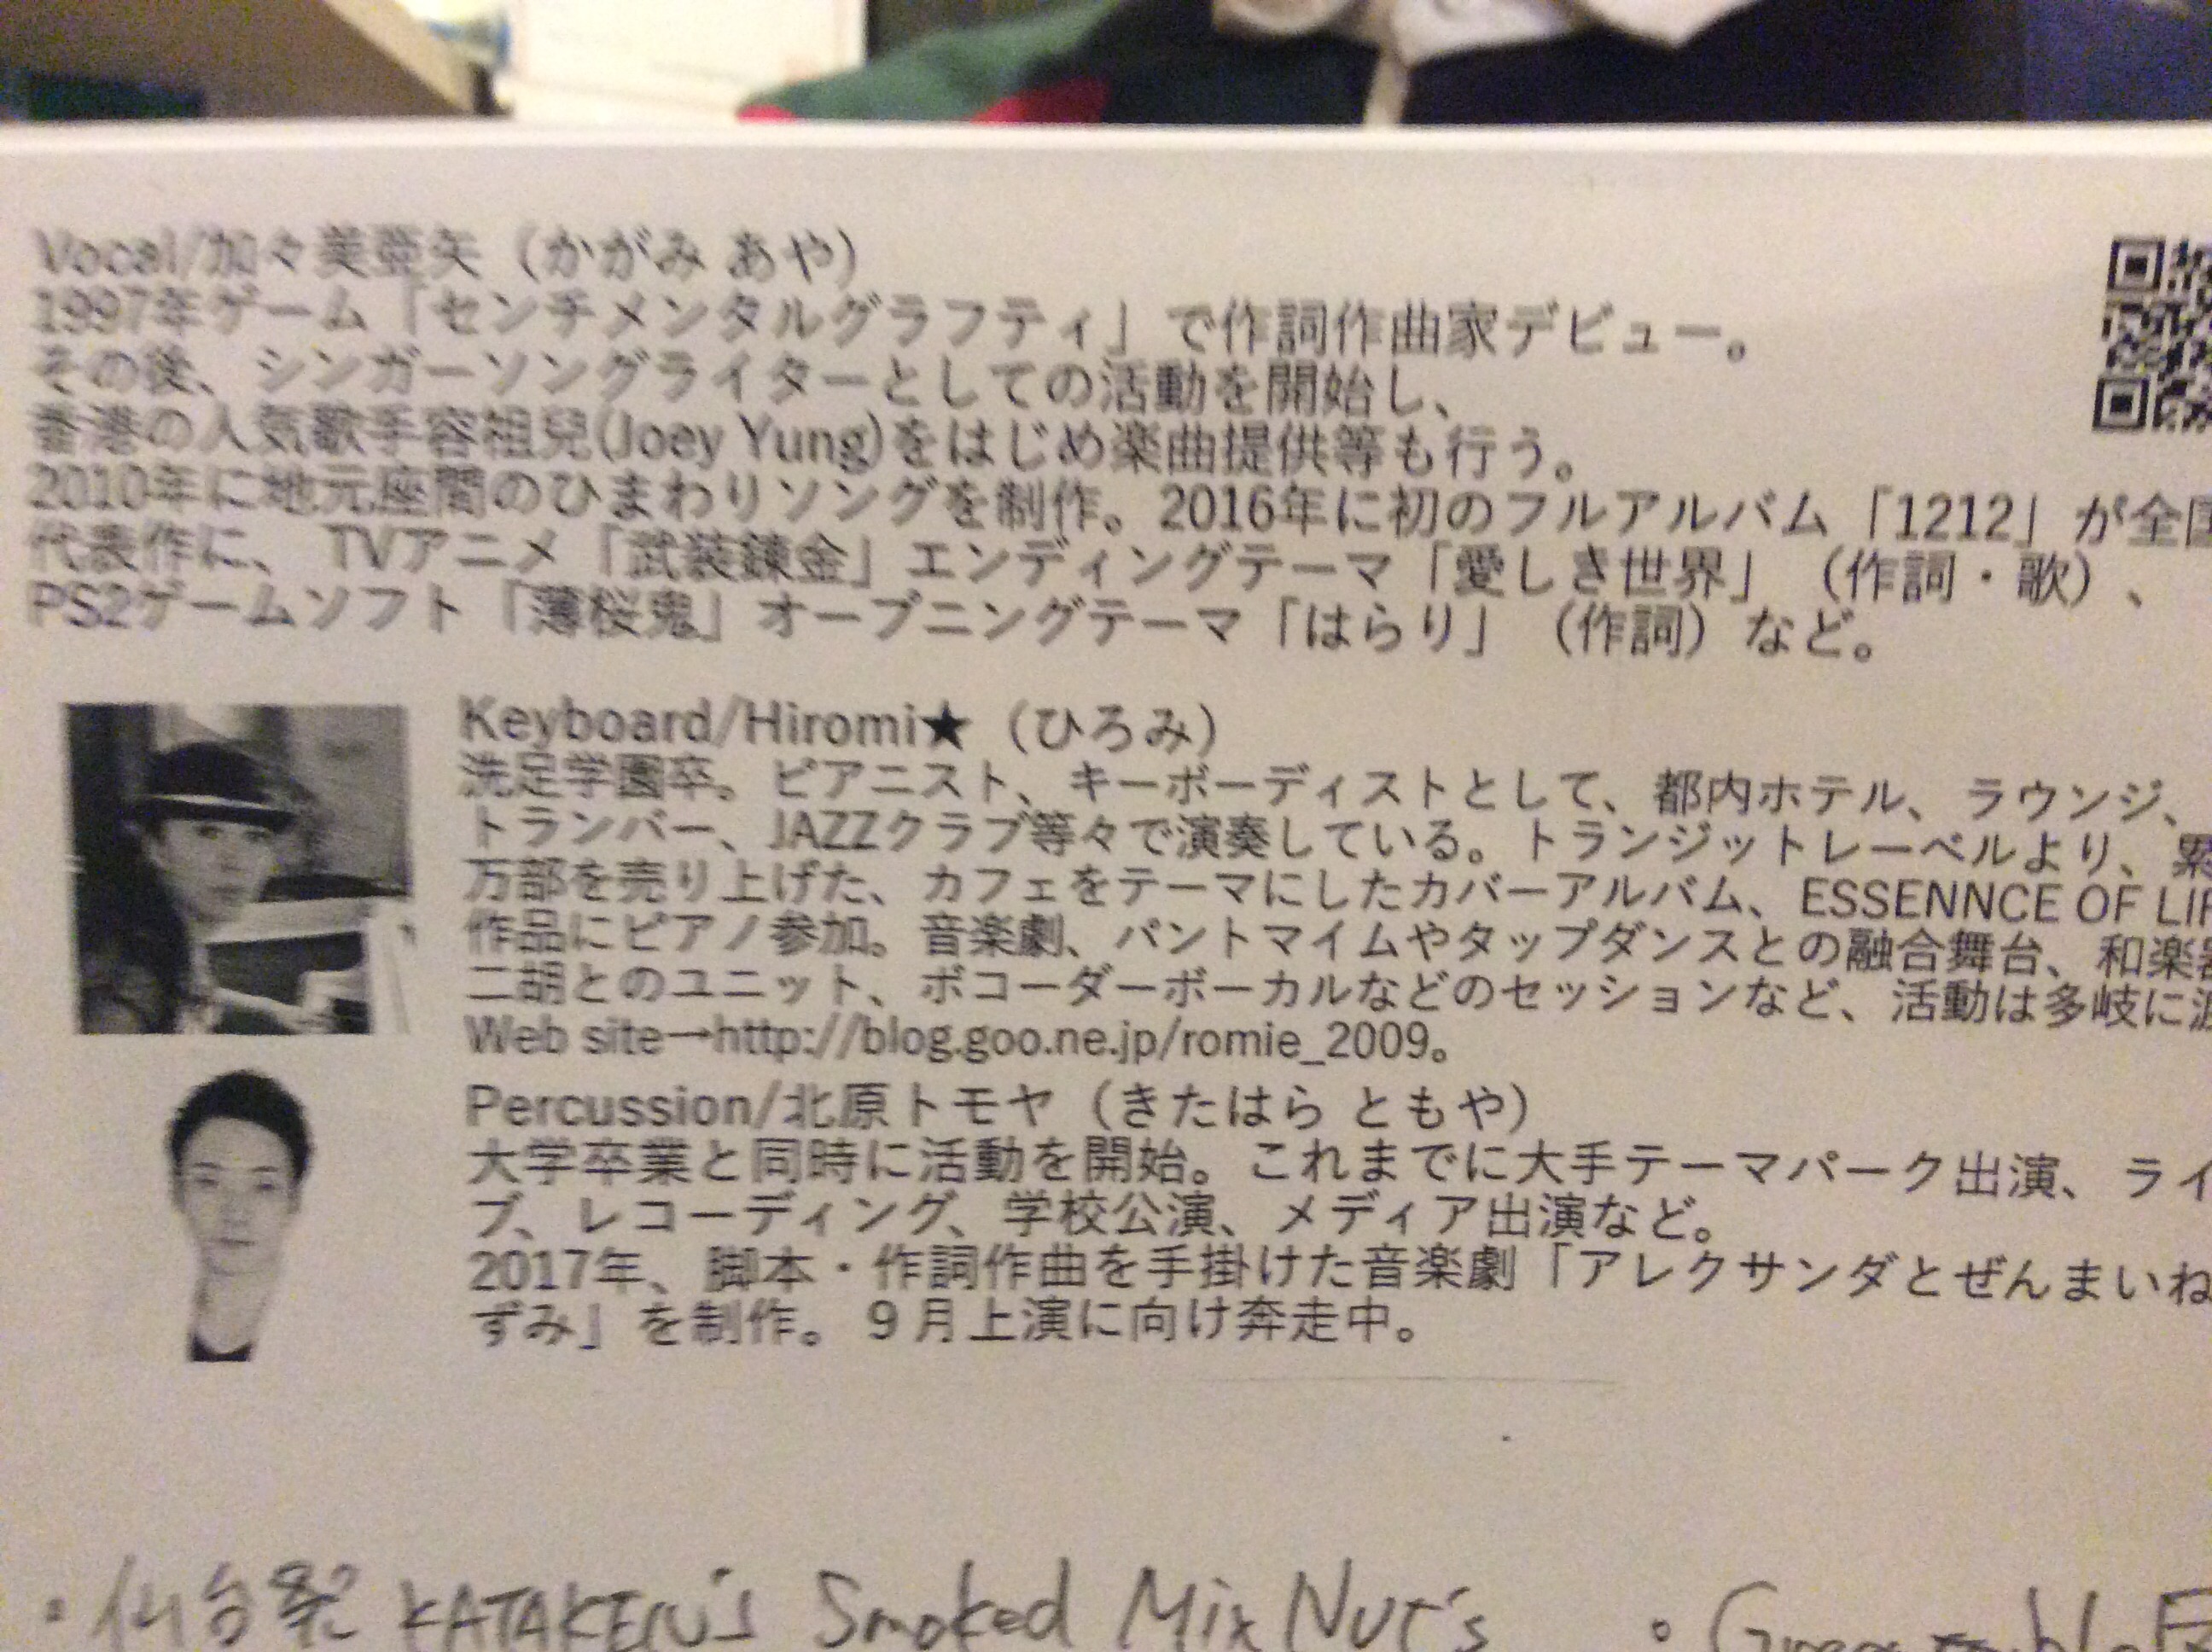 Vocal/加々美亜矢（かがみ あや）
1997年ゲーム「センチメンタルグラフティ」で作詞作曲家デビュー。
その後、シンガーソングライターとしての活動を開始し、
香港の人気歌手容祖兒(Joey Yung)をはじめ楽曲提供等も行う。
2010年に地元座間のひまわりソングを制作。2016年に初のフルアルバム「1212」が全国
代表作に、TVアニメ「武装錬金」エンディングテーマ「愛しき世界」（作詞・歌）、
PS2ゲームソフト「薄桜鬼」オープニングテーマ「はらり」（作詞）など。
Keyboard/Hiromi★（ひろみ）
洗足学園卒。ピアニスト、キーボーディストとして、都内ホテル、ラウンジ、
トランバー、JAZZクラブ等々で演奏している。トランジットレーベルより、累
万部を売り上げた、カフェをテーマにしたカバーアルバム、ESSENNCE OF LIF
作品にピアノ参加。音楽劇、パントマイムやタップダンスとの融合舞台、和楽器
二胡とのユニット、ボコーダーボーカルなどのセッションなど、活動は多岐に渡
Web site→http://blog.goo.ne.jp/romie_2009。
Percussion/北原トモヤ（きたはら ともや）
大学卒業と同時に活動を開始。これまでに大手テーマパーク出演、ライ
ブ、レコーディング、学校公演、メディア出演など。
2017年、脚本・作詞作曲を手掛けた音楽劇「アレクサンダとぜんまいね
ずみ」を制作。９月上演に向け奔走中。
・仙台発 Smoked Mix Nut's